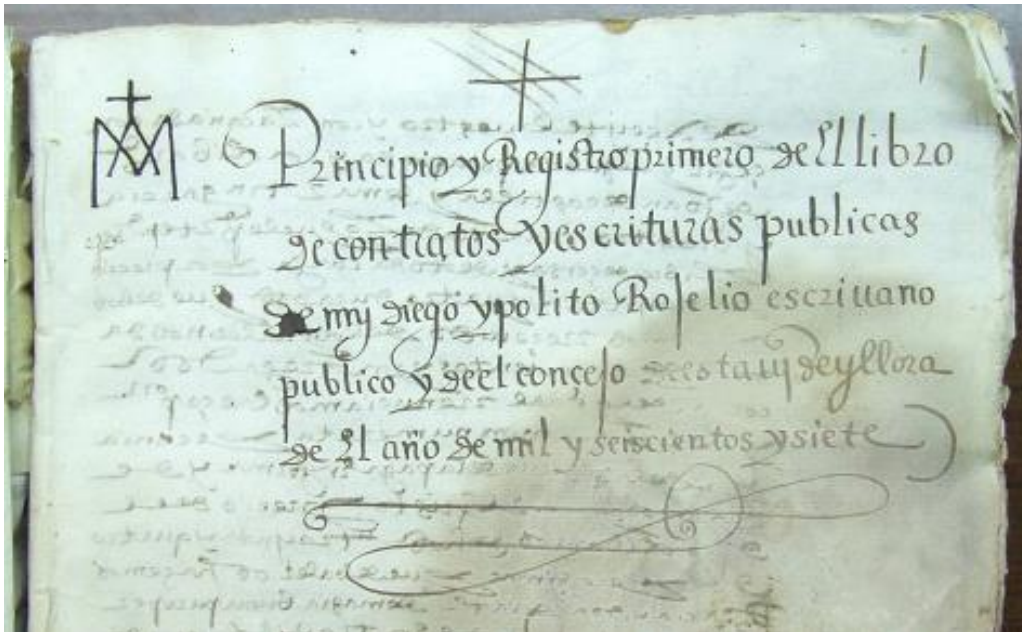 1
Principio y Registro primero de El libro
de contratos y escrituras publicas
de my diego ypolito Roselio escriuano
publico y de el conçeso de esta uª de yllora
de El año de mil y seiscientos y siete